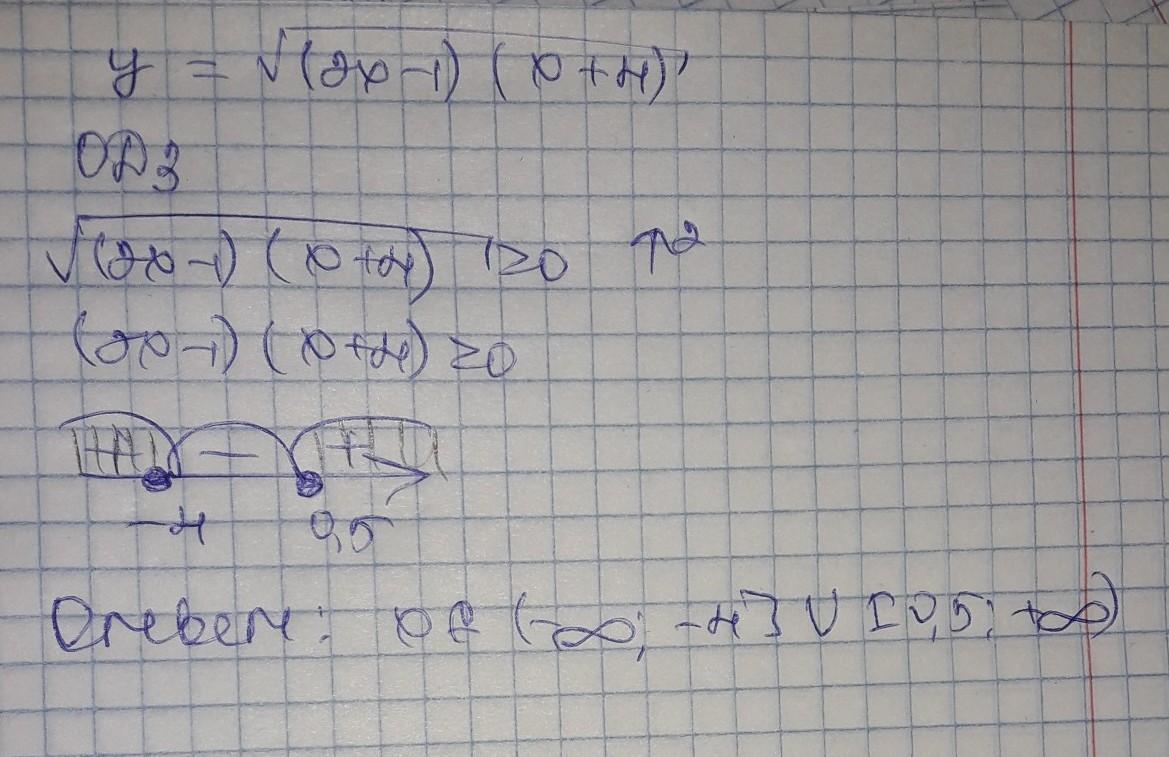 y = √(2x-1) (x+4)
ОДЗ
√(2x-1) (x+4) ≥0 ↑2
(2x-1) (x+4) ≥0
+ - +
-4 0,5
Ответ: x ∈ (-∞; -4] ∪ [0,5; +∞)